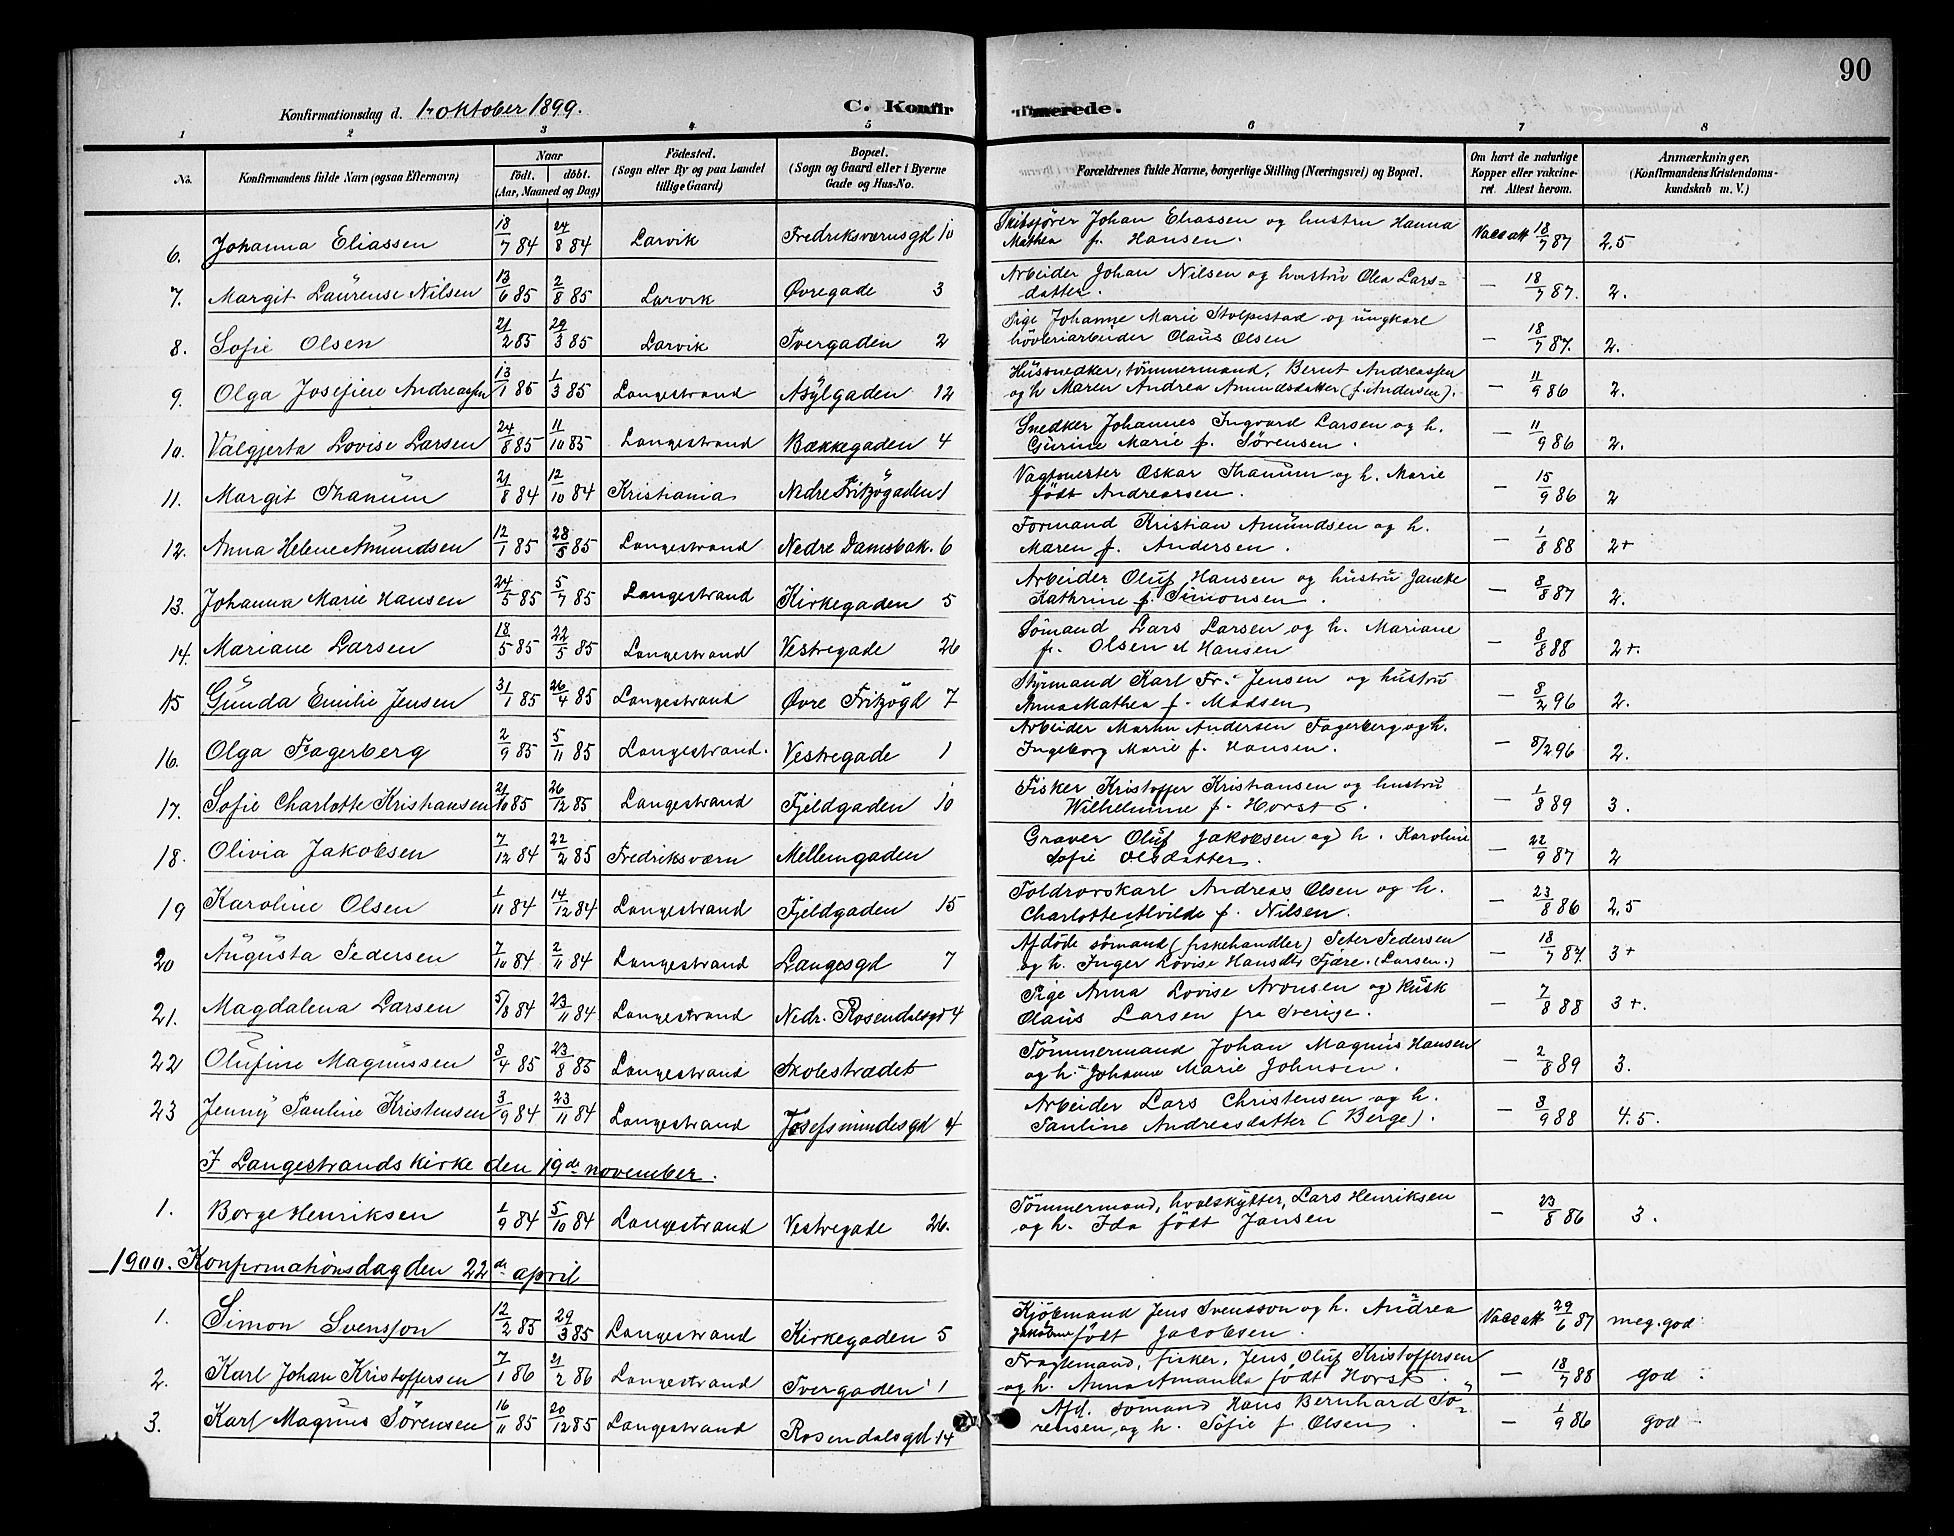 90
Konfirmationsdag d. 1. oktober 1899. C. Konfirmerede.
1 2 3 4 5 6 7 8
No. Konfirmandens fulde Navn (ogsaa Efternavn) Naar födt. döbt. (Aar, Maaned og Dag) Födested. (Sogn eller By og paa Landet tillige Gaard) Bopæl. (Sogn og Gaard eller i Byerne Gade og Hus-No. Forældrenes fulde Navne, borgerlige Stilling (Næringsvei) og Bopæl. Om havt de naturlige Kopper eller vakcineret. Attest herom. Anmærkninger. (Konfirmandens Kristendomskundskab m. V.)
6. Johanna Eliassen 18/7 84 24/8 84 Larvik Fredriksværnsgd 10 Skibsfører Johan Eliassen og hustru Hanna
Mathea f. Hansen. Vacc att 18/7 87 2,5
7. Margit Laurense Nilsen 13/6 85 2/8 85 Larvik Øvregade 3 Arbeider Johan Nilsen og hustru Olea Lars=
datter. — 18/7 87. 2.
8. Sofie Olsen 21/2 85 29/3 85 Larvik Tvergaden 2 Pige Johanne Marie Stolpestad og ungkarl
høvleriarbeider Olaus Olsen — 18/7 87. 2.
9. Olga Josefine Andreassen 13/1 85 1/3 85 Langestrand Asylgaden 12 Hussnedker, tømmermand, Bernt Andreassen
og h. Maren Andrea Amundsdatter (f. Andersen). — 11/9 86 2.
10. Valgjerta Lovise Larsen 24/8 85 11/10 85 Langestrand Bækkegaden 4 Snedker Johannes Ingvard Larsen og h.
Gurine Marie f. Sørensen. — 11/9 86 2.
11. Margit Thanum 21/8 84 12/10 84 Kristiania Nedre Fritzögaden 1 Vagtmester Oskar Thanum og h. Marie
født Andreassen. — 15/9 86 2
12. Anna Helene Amundsen 12/1 85 28/5 85 Langestrand Nedre Damsbak. 6 Formand Kristian Amundsen og h.
Maren f. Andersen. — 1/8 88 2+
13. Johanna Marie Hansen 24/5 85 5/7 85 Langestrand Kirkegaden 5 Arbeider Oluf Hansen og hustru Janeke
Kathrine f. Simonsen. — 8/8 87 2.
14. Mariane Larsen 18/5 85 22/5 85 Langestrand Vestregade 26 Sømand Lars Larsen og h. Mariane
f. Olsen el Hansen — 8/8 88 2+.
15 Gunda Emilie Jensen 31/1 85 26/4 85 Langestrand Øvre Fritzögd 7 Styrmand Karl Fr. Jensen og hustru
Anna Mathea f. Madsen — 8/2 96 2.
16. Olga Fagerberg 2/9 85 5/11 85 Langestrand. Vestregade 1 Arbeider Martin Andersen Fagerberg og h.
Ingeborg Marie f. Hansen. — 8/2 96 2.
17. Sofie Charlotte Kristiansen 21/10 85 26/12 85 Langestrand Fjeldgaden 10 Fisker Kristoffer Kristiansen og hustru
Wilhelmine f. Horst. — 1/8 89 3.
18. Olivia Jakobsen 7/12 84 22/2 85 Fredriksværn Mellemgaden Graver Oluf Jakobsen og h. Karoline
Sofie Olsdatter. — 22/9 87 2
19 Karoline Olsen 1/11 84 14/12 84 Langestrand Fjeldgaden 15 Toldrorskarl Andreas Olsen og h.
Charlotte Alvilde f. Nilsen. — 23/8 86 2,5
20 Augusta Pedersen 7/10 84 2/11 84 Langestrand Langesgd 7 Afdøde sømand (fiskehandler) Peter Pedersen
og h. Inger Lovise Hansdtr Fjære. (Larsen.) — 18/7 87. 3+
21. Magdalena Larsen 5/8 84 23/11 84 Langestrand Nedr. Rosendalsgd 4 Pige Anna Lovise Aronsen og Kusk
Olaus Larsen fra Sverige. — 7/8 88 3+.
22 Olufine Magnussen 3/4 85 23/8 85 Langestrand Skolestrædet Tømmermand Johan Magnus Hansen
og h. Johanne Marie Johnsen. — 2/8 89 3.
23 Jenny Pauline Kristensen 3/9 84 23/11 84 Langestrand Josefsmindesgd 4 Arbeider Lars Christensen og h.
Pauline Andreasdatter (Berge). — 3/9 88 4.5.
I Langestrands kirke den 19de november.
1. Borge Henriksen 1/9 84 5/10 84 Langestrand Vestregade 26. Tømmermand, hvalskytter, Lars Henriksen
og h. Ida født Jansen — 23/8 86 3.
1900. Konfirmationsdag den 22de april
1. Simon Svensson 12/2 85 29/3 85 Langestrand Kirkegaden 5 Kjøbmand Jens Svensson og h. Andrea
Jakobine født Jacobsen. Vacc att 29/6 87 meg. god
2. Karl Johan Kristoffersen 7/1 86 21/2 86 Langestrand Tvergaden 1 Fragtemand, fisker, Jens Oluf Kristoffersen
og h. Anna Amanda født Horst. — 18/7 88 god.
3. Karl Magnus Sørensen 16/11 85 20/12 85 Langestrand Rosendalsgd 14 Afd. sømand Hans Bernhard Sø=
rensen og h. Sofie f. Olsen. — 1/9 86 god